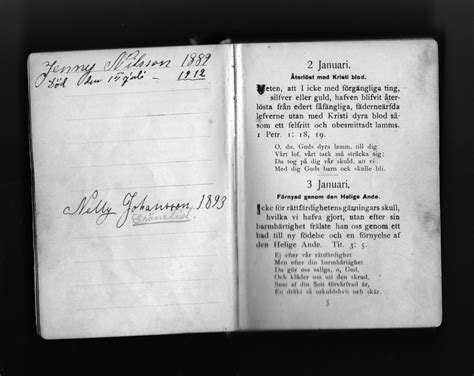 Jenny Nilsson 1889
död den 15 juli - 1912
Nelly Johansson 1893
2 Januari.
Återlöst med Kristi blod.
Veten, att I icke med förgängliga ting,
silfver eller guld, hafven blifvit åter-
lösta från edert fåfängliga, fäderneärfda
lefverne utan med Kristi dyra blod så-
som ett felfritt och obesmittadt lamms.
1 Petr. 1: 18, 19.
O, du, Guds dyra lamm, till dig
Vårt lof, vårt tack må sträcka sig;
Du tog på dig vår skuld, att vi
Med dig Guds barn ock skulle bli.
3 Januari.
Förnyad genom den Helige Ande.
Icke för rättfärdighetens gärningars skull,
hvilka vi hafva gjort, utan efter sin
barmhärtighet frälste han oss genom ett
bad till ny födelse och en förnyelse af
den Helige Ande. Tit. 3: 5.
Ej efter vår rättfärdighet
Men efter din barmhärtighet
Du gör oss saliga, o, Gud,
Och kläder oss uti den skrud,
Som af din Son förvärfvad är,
En dräkt så oskuldshvit och skär.
5